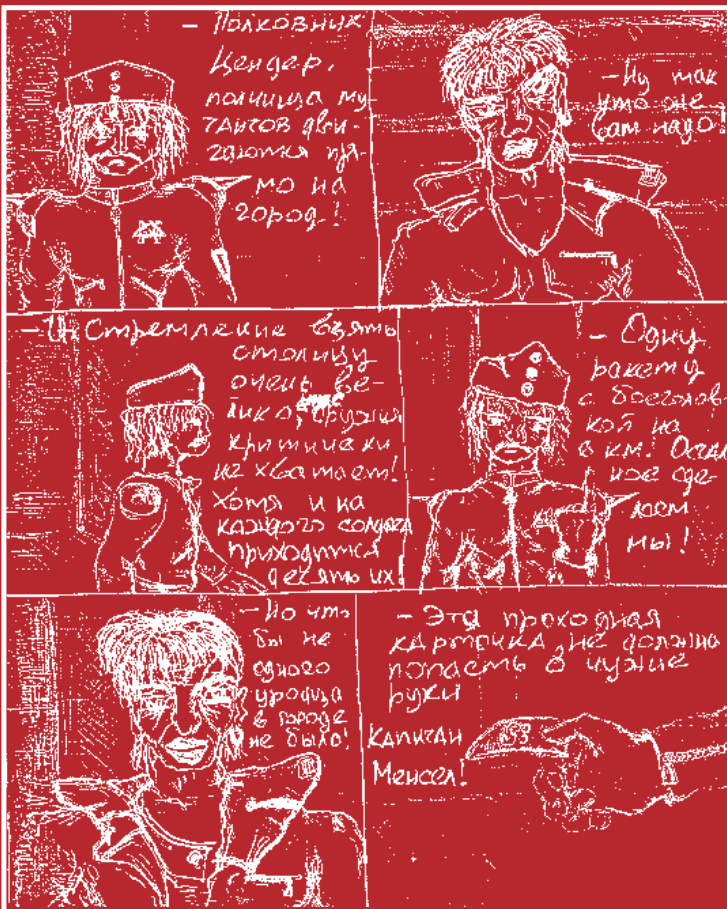 - Полковник
Цендер,
полчища му-
тантов дви-
гаются пря-
мо на
город!
- Ну так
что же
вам надо?
- Их стремление взять
столицу
очень ве-
лико, оружия
критически
не хватает!
Хотя и на
каждого солдата
приходится
десять их!
- Одну
ракету
с боеголов-
кой на
6 км! Осталь
ное сде-
лаем
мы!
- Но что
бы не
одного
уродца
в городе
не было!
- Эта проходная
карточка не должна
попасть в чужие
руки
капитан
Менсел!
153